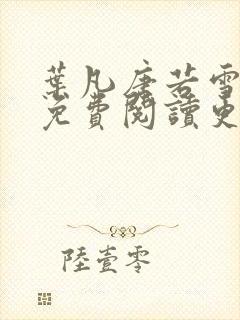 葉凡唐若雪
免費閱讀史
陸壹零